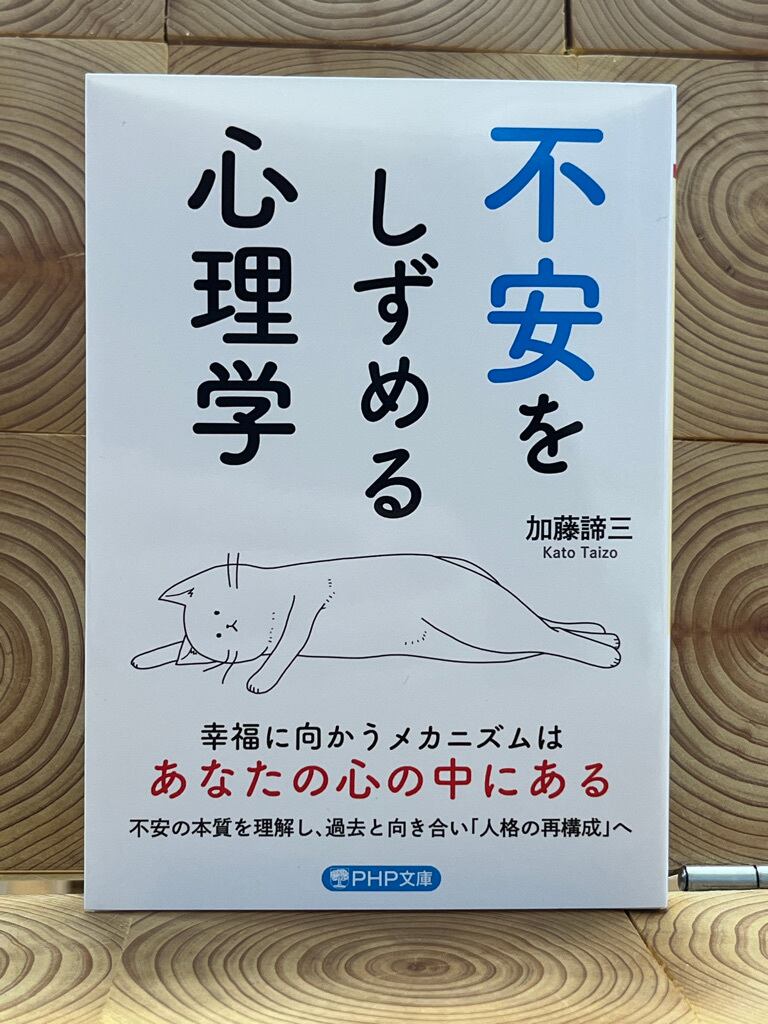 不安を
しずめる
心理学
加藤諦三
Kato Taizo
幸福に向かうメカニズムは
あなたの心の中にある
不安の本質を理解し、過去と向き合い「人格の再構成」へ
PHP文庫